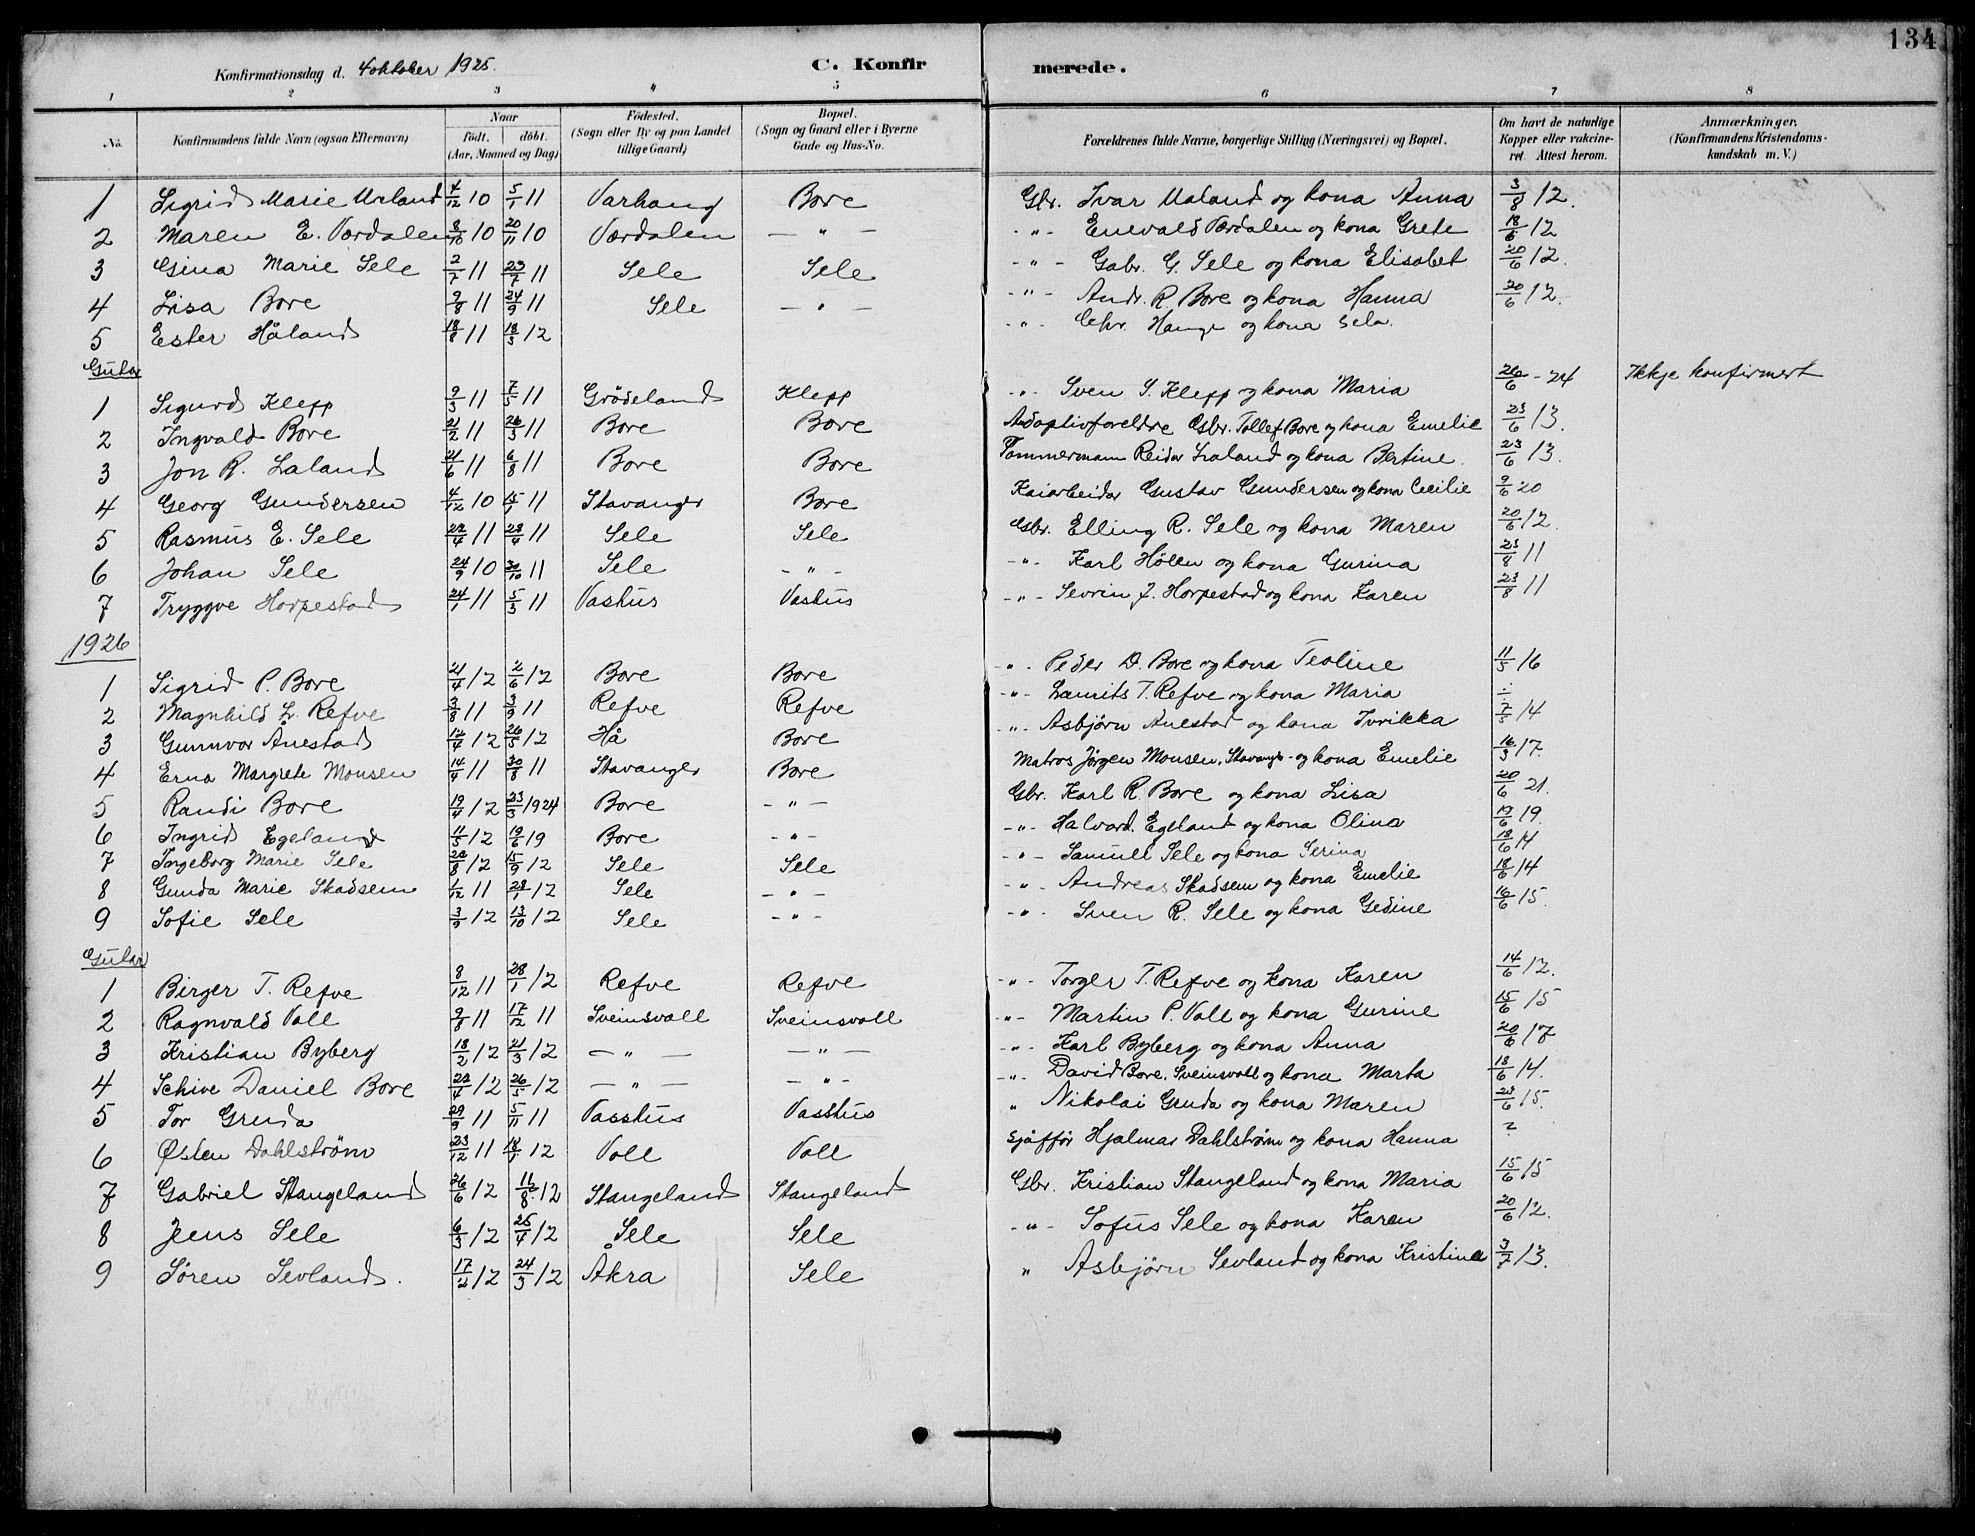 134
Konfirmationsdag d. 4 oktober 1925.
C. Konfirmerede.
1 2 3 4 5 6 7 8
No. Konfirmandens fulde Navn (ogsaa Efternavn) Naar født. døbt. (Aar, Maaned og Dag) Fødested. (Sogn eller By og paa Landet tillige Gaard) Bopæl. (Sogn og Gaard eller i Byerne Gade og Hus-No. Forældrenes fulde Navne, borgerlige Stilling (Næringsvei) og Bopæl. Om havt de naturlige Kopper eller vakcineret. Attest herom. Anmærkninger. (Konfirmandens Kristendomskundskab m. V.)
1 Sigrid Marie Maland 4/12 10 5/1 11 Varhaug Bore Gbr. Ivar Maland og kona Anna 3/8 12.
2 Maren E. Værdalen 8/10 10 20/11 10 Værdalen — " — - " - Enevald Værdalen og kona Grete 18/6 12
3 Gina Marie Sele 2/7 11 23/7 11 Sele Sele - " - Gabr. G. Sele og kona Elisabet 20/6 12.
4 Lisa Bore 9/8 11 24/9 11 Sele — " — - " - Andr. R. Bore og kona Hanna 20/6 12.
5 Ester Håland 18/8 11 18/3 12 - " - Chr. Hauge og kona Sela.
Gutar
1 Sigurd Klepp 9/3 11 7/5 11 Grødeland Klepp - " - Sven S. Klepp og kona Maria 26/6 - 24 Ikkje konfirmert
2 Ingvald Bore 21/2 11 26/3 11 Bore Bore Adoptivforeldre Gbr. Tollef Bore og kona Emelie 23/6 13.
3 Jon R. Laland 21/6 11 6/8 11 Bore Bore Tømmermann Reidar Laland og kona Bertine. 23/6 13.
4 Georg Gundersen 4/12 10 15/1 11 Stavanger Bore Kaiarbeidar Gustav Gundersen og kona Cecilie 9/6 20
5 Rasmus E. Sele 22/4 11 23/4 11 Sele Sele Gbr. Elling R. Sele og kona Maren 20/6 12.
6 Johan Sele 24/9 10 30/10 11 Sele - " - - " - Karl Hølen og kona Gurina 23/8 11
7 Tryggve Horpestad 24/1 11 5/3 11 Vashus Vashus - " - Sevrin J. Horpestad og kona Karen 23/8 11
1926
1 Sigrid P. Bore 21/4 12 2/6 12 Bore Bore - " - Peder D. Bore og kona Teoline 11/5 16
2 Magnhild L. Refve 3/8 11 3/9 11 Refve Refve - " - Laurits T. Refve og kona Maria
3 Gunnvor Anestad 12/4 12 26/5 12 Hå Bore - " - Asbjørn Anestad og kona Iverikka 7/5 14
4 Erna Margrete Monsen 14/4 11 30/8 11 Stavanger Bore Matros Jørgen Monsen, Stavanger - og kona Emelie 16/3 17.
5 Randi Bore 19/4 12 23/3 1924 Bore - " - Gbr. Karl R. Bore og kona Lisa 20/6 21.
6 Ingrid Egeland 11/5 12 19/6 19 Bore - " - - " - Halvard Egeland og kona Olina 19/6 19.
7 Ingeborg Marie Sele 22/8 12 15/9 12 Sele Sele - " - Samuel Sele og kona Serina 18/6 14
8 Gunda Marie Skadsem 1/12 11 28/1 12 Sele - " - - " - Andreas Skadsem og kona Emelie 18/6 14
9 Sofie Sele 3/9 12 13/10 12 Sele - " - - " - Sven R. Sele og kona Gedine 16/6 15.
Gutar
1 Birger T. Refve 8/12 11 28/1 12 Refve Refve - " - Torger T. Refve og kona Karen 14/6 12.
2 Ragnvald Voll 9/8 11 17/12 11 Sveinsvoll Sveinsvoll - " - Martin P. Voll og kona Gurine 15/6 15
3 Kristian Byberg 18/2 12 21/3 12 — " — — " — - " - Karl Byberg og kona Anna 20/6 17
4 Schive Daniel Bore 22/4 12 26/5 12 — " — — " - - " - David Bore, Sveinsvoll og kona Marta 18/6 14.
5 Tor Gruda 29/9 11 5/11 11 Vasshus Vasshus " Nikolai Gruda og kona Maren 23/6 15.
6 Østen Dahlstrøm 23/12 11 18/5 12 Voll Voll Sjåfför Hjalmar Dahlstrøm og kona Hanna ?
7 Gabriel Stangeland 26/6 12 11/8 12 Stangeland Stangeland Gbr. Kristian Stangeland og kona Maria 15/6 15
8 Jens Sele 6/3 12 25/4 12 Sele Sele - " - Sofus Sele og kona Karen 20/6 12.
9 Søren Sevland. 17/2 12 24/3 12 Åkra Sele " Asbjørn Sevland og kona Kristina 3/7 13.